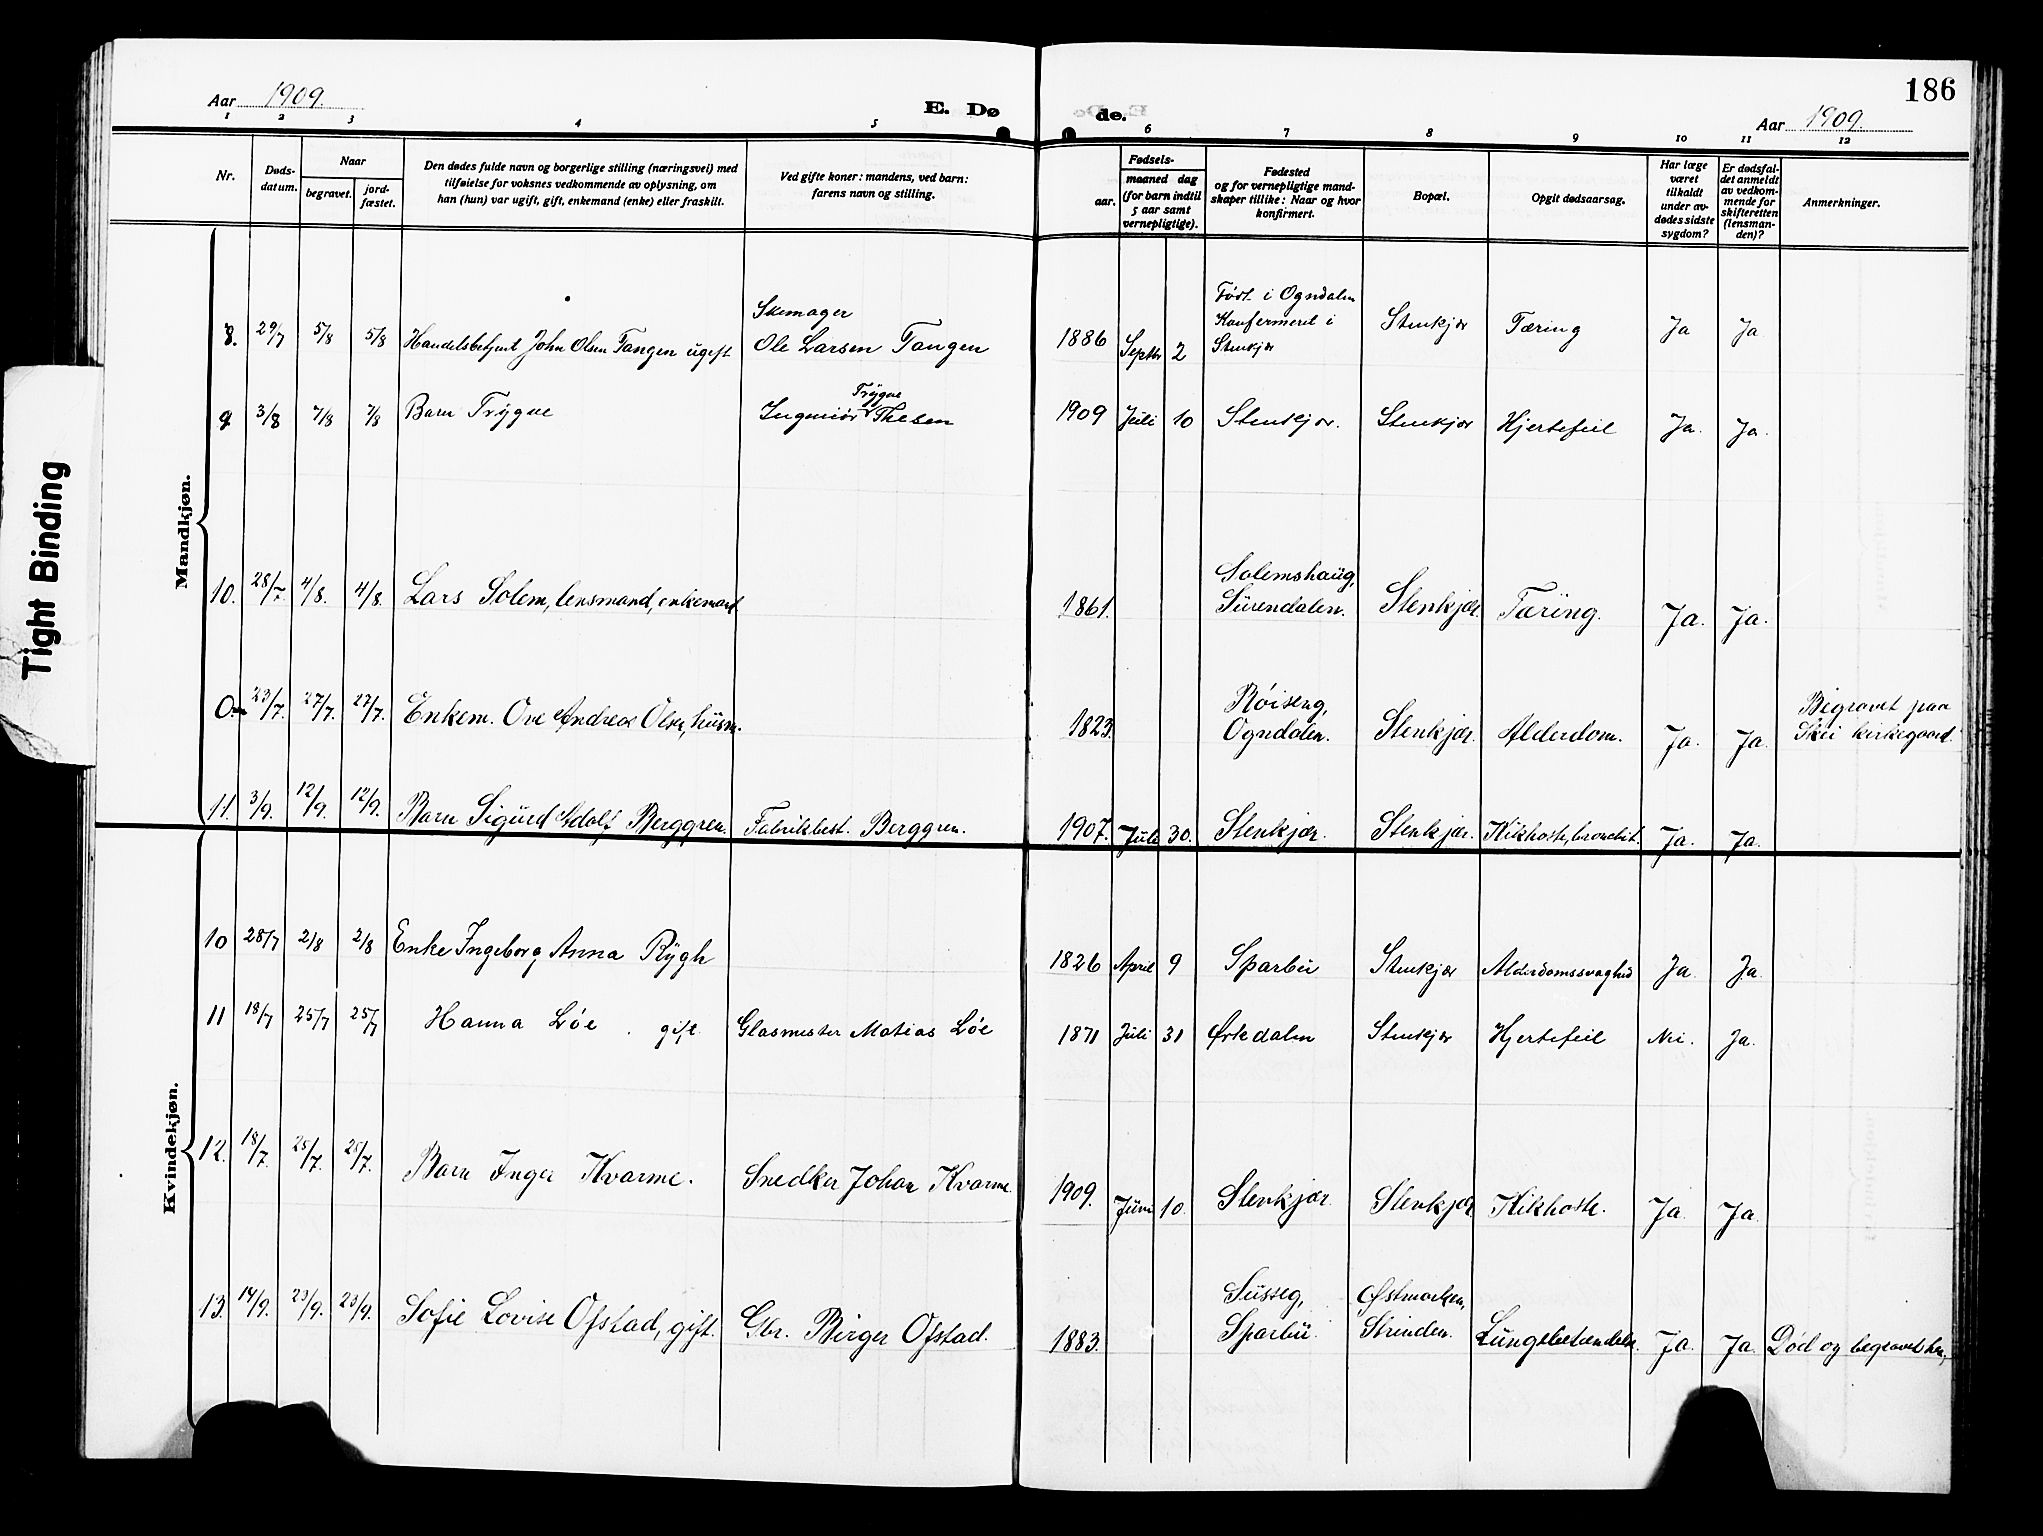 186
Aar 1909.
E. Dø
de.
Aar 1909
1 2 3 4 5 6 7 8 9 10 11 12
Nr.
Døds-
datum.
Naar
begravet.
jord-
fæstet.
Den dødes fulde navn og borgerlige stilling (næringsvei) med
tilføielse for voksnes vedkommende av oplysning, om
han (hun) var ugift, gift, enkemand (enke) eller fraskilt.
Ved gifte koner: mandens, ved barn:
farens navn og stilling.
Fødsels-
aar.
maaned dag
(for barn indtil
5 aar samt
vernepligtige).
Fødested
og for vernepligtige mand-
skaper tillike: Naar og hvor
konfirmert.
Bopæl.
Opgit dødsaarsag.
Har læge
været
tilkaldt
under av-
dødes sidste
sygdom?
Er dødsfal-
det anmeldt
av vedkom-
mende for
skifteretten
(lensman-
den)?
Anmerkninger.
Tight Binding
Mandkjøn.
Skomager
Født i Ogndalen
Konfermeret i
Stenkjær
8. 29/7 5/8 5/8 Handelsbetjent John Olsen Tangen ugift Ole Larsen Tangen 1886 Septbr 2 Stenkjær Tæring Ja Ja
Trygve
9 3/8 7/8 7/8 Barn Trygve Ingeniør Thesen 1909 Juli 10 Stenkjær. Stenkjær Hjertefeil Ja. Ja.
Solemshaug,
10. 28/7. 4/8. 4/8. Lars Solem, lensmand, enkemand 1861. Surendalen. Stenkjær. Tæring. Ja. Ja.
Røiseng, Begravet paa
0. 23/7. 27/7. 27/7. Enkem. Ove Andreas Olsen, husm. 1823. Ogndalen. Stenkjær. Alderdom. Ja. Ja. Skei kirkegaard.
11. 3/9. 12/9. 12/9. Barn Sigurd Adolf Berggren. Fabrikbest. Berggren. 1907. Juli 30. Stenkjær. Stenkjær. Kikhoste, bronchit. Ja. Ja.
Kvindekjøn.
10 28/7 2/8 2/8 Enke Ingeborg Anna Rygh 1826 April 9 Sparbu Stenkjær Alderdomssvaghed Ja. Ja.
11 18/7 25/7 25/7 Hanna Løe gift Glasmester Matias Løe 1871 Juli 31 Ørkedalen Stenkjær Hjertefeil Nei. Ja.
12. 18/7. 25/7. 25/7. Barn Inger Kvarme. Snedker Johan Kvarme. 1909. Juni 10. Stenkjær. Stenkjær. Kikhoste. Ja. Ja.
Østmarken,
13. 14/9. 23/9. 23/9. Sofie Lovise Ofstad, gift. Gbr. Birger Ofstad. 1883. Sparbu. Strinden. Lungebetændelse. Ja. Ja. Død og begravet